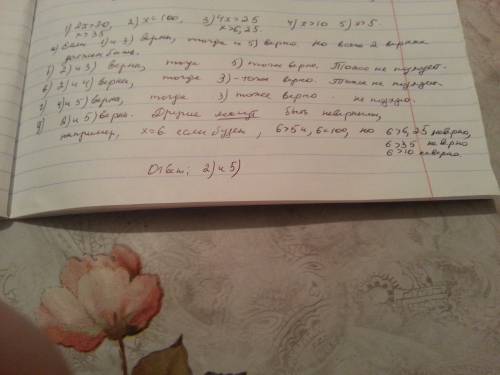 1) 2x>70, 2) x=100, 3) 4x>25 4) x>10 5) x>5.
x>35 x>6,25
а) Если 1) и 3) верны, тогда и 5) верно но всего 2 верных
должно быть.
б) 2) и 3) верны, тогда 5) тоже верно. Тоже не подходит.
в) 2) и 4) верны, тогда 3) - тоже верно. Тоже не подходит.
г) 4) и 5) верны, тогда 3) тоже верно. не подходит.
д) и 5) верны. Другие могут быть неверными,
например, x=6 если будет, 6>5 и, 6=100, но 6>6,25 неверно,
6>35 неверно
6>10 неверно.
Ответ: 2) и 5)